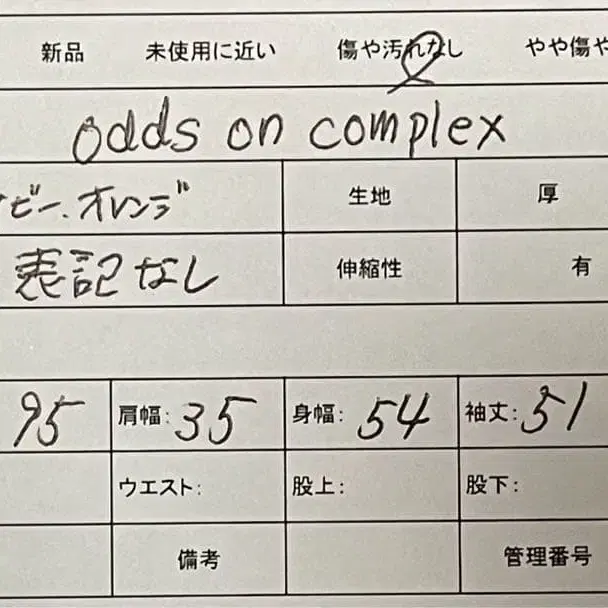 新品 未使用に近い 傷や汚れなし やや傷や
odds on complex
ビー.オレンジ 生地 厚
表記なし 伸縮性 有
95 肩幅:35 身幅:54 袖丈:51
ウエスト: 股上: 股下:
備考 管理番号